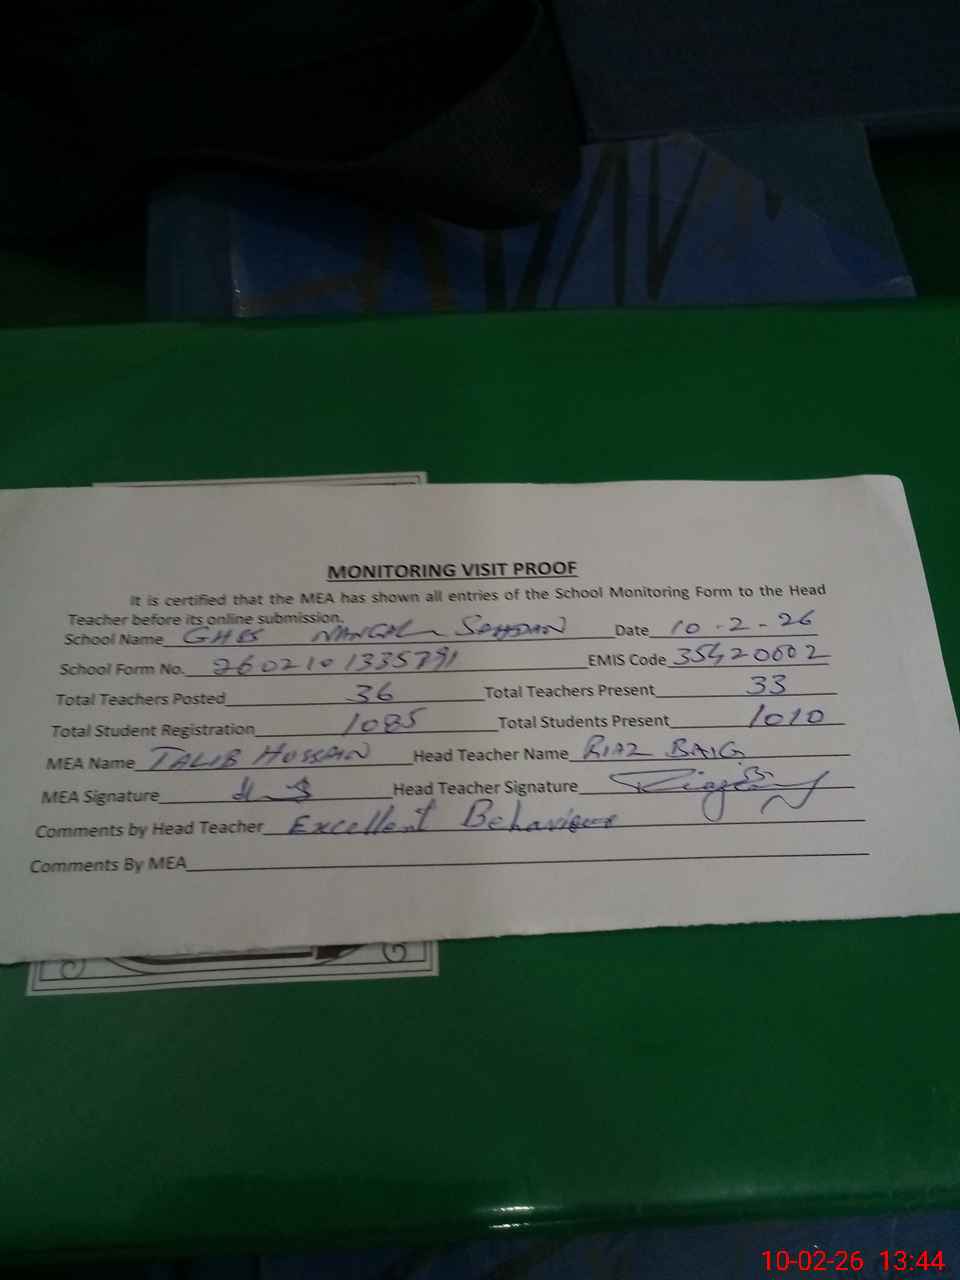 MONITORING VISIT PROOF
It is certified that the MEA has shown all entries of the School Monitoring Form to the Head
Teacher before its online submission.
School Name GHSS NANGAL SAHDAN Date 10-2-26
School Form No. 2602101335791 EMIS Code 35420002
Total Teachers Posted 36 Total Teachers Present 33
Total Student Registration 1085 Total Students Present 1010
MEA Name TALIB HUSSAIN Head Teacher Name RIAZ BAIG
MEA Signature Head Teacher Signature
Comments by Head Teacher Excellent Behaviour
Comments By MEA
10-02-26 13:44